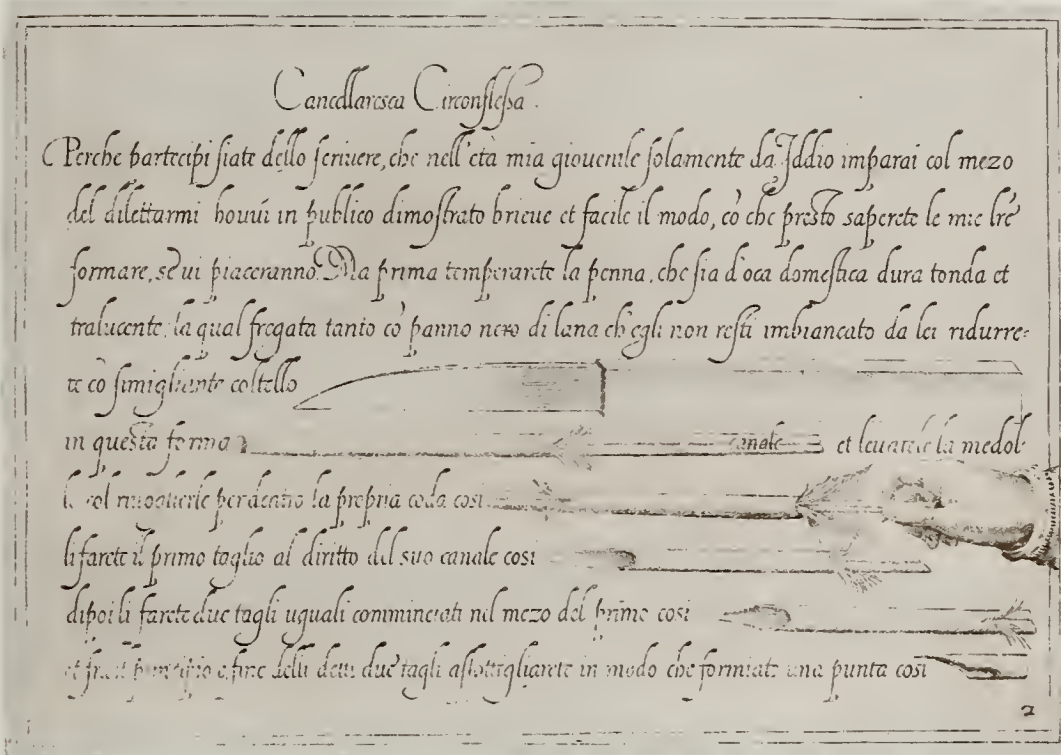 Cancellaresca Circonflessa.
Perche partecipi siate dello scriuere, che nell'età mia giouenile solamente da Iddio imparai col mezo
del dilettarmi houui in publico dimostrato brieue et facile il modo, cò che presto saperete le mie lrẽ
formare, se ui piaceranno. Ma prima temperarete la penna, che sia d'oca domestica dura tonda et
tralucente, la qual fregata tanto cò panno nero di lana ch'egli non resti imbiancato da lei ridurre:
te cò simigliante coltello
in questa forma canale et leuarete la medol
col per la propria coda cosi
li farete il primo taglio al diritto del suo canale cosi
dipoi li farete due tagli uguali comminciati nel mezo del primo cosi
et principio e fine delli detti due tagli assottigliarete in modo che formiate una punta cosi
2